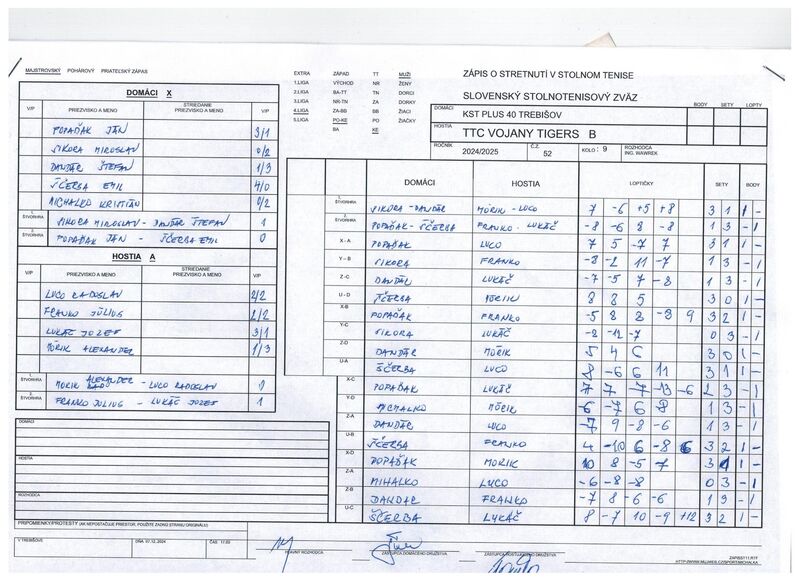 MAJSTROVSKÝ POHÁROVÝ PRIATEĽSKÝ ZÁPAS
EXTRA ZÁPAD TT MUŽI
1.LIGA VÝCHOD NR ŽENY
2.LIGA BA-TT TN DORCI
3.LIGA NR-TN ZA DORKY
4.LIGA ZA-BB BB ŽIACI
5.LIGA PO-KE PO ŽIAČKY
BA KE
ZÁPIS O STRETNUTÍ V STOLNOM TENISE
SLOVENSKÝ STOLNOTENISOVÝ ZVÄZ
BODY SETY LOPTY
DOMÁCI
KST PLUS 40 TREBIŠOV
HOSTIA
TTC VOJANY TIGERS B
ROČNÍK 2024/2025 Č.Z. 52 KOLO : 9 ROZHODCA
ING. WAWREK
DOMÁCI X
V/P PRIEZVISKO A MENO STRIEDANIE PRIEZVISKO A MENO V/P
POPAĎAK JÁN 3/1
SIKORA MIROSLAV 0/2
DANDÁR ŠTEFAN 1/3
ŠČERBA EMIL 4/0
MICHALKO KRISTIÁN 0/2
1. ŠTVORHRA SIKORA MIROSLAV - DANDÁR ŠTEFAN 1
2. ŠTVORHRA POPAĎAK JÁN - ŠČERBA EMIL 0
HOSTIA A
V/P PRIEZVISKO A MENO STRIEDANIE PRIEZVISKO A MENO V/P
LUCO RADOSLAV 2/2
FRANKO JÚLIUS 2/2
LUKÁČ JOZEF 3/1
MÓRIK ALEXANDER 1/3
1. ŠTVORHRA MÓRIK ALEXANDER - LUCO RADOSLAV 0
2. ŠTVORHRA FRANKO JÚLIUS - LUKÁČ JOZEF 1
DOMÁCI
HOSTIA
ROZHODCA
DOMÁCI HOSTIA LOPTIČKY SETY BODY
1. ŠTVORHRA SIKORA - DANDÁR MÓRIK - LUCO 7 -6 +5 +8 3 1 1 -
2. ŠTVORHRA POPAĎAK - ŠČERBA FRANKO - LUKÁČ -8 -6 8 -8 1 3 - 1
X - A POPAĎAK LUCO 7 5 -7 7 3 1 1 -
Y - B SIKORA FRANKO -8 -2 11 -7 1 3 - 1
Z -C DANDÁR LUKÁČ -7 -5 7 -8 1 3 - 1
U - D ŠČERBA MÓRIK 8 8 5 3 0 1 -
X-B POPAĎAK FRANKO -5 8 8 -9 9 3 2 1 -
Y-C SIKORA LUKÁČ -2 -12 -7 0 3 - 1
Z-D DANDÁR MÓRIK 5 4 6 3 0 1 -
U-A ŠČERBA LUCO 8 -6 6 11 3 1 1 -
X-C POPAĎAK LUKÁČ 7 -13 -6 2 3 - 1
Y-D MICHALKO MÓRIK -6 -7 6 1 3 - 1
Z-A DANDÁR LUCO -7 9 -8 -6 1 3 - 1
U-B ŠČERBA FRANKO 4 -10 6 -8 6 3 2 1 -
X-D POPAĎAK MÓRIK 10 8 -5 7 3 1 1 -
Z-A MIHALKO LUCO -6 -8 -8 0 3 - 1
Z-B DANDÁR FRANKO -7 8 -6 -6 1 3 - 1
U-C ŠČERBA LUKÁČ 8 -7 10 -9 +12 3 2 1 -
PRIPOMIENKY/PROTESTY (AK NEPOSTAČUJE PRIESTOR, POUŽITE ZADNÚ STRANU ORIGINÁLU)
V TREBIŠOVE DŇA 07.12.2024 ČAS: 17:00
HLAVNÝ ROZHODCA ZÁSTUPCA DOMÁCEHO DRUŽSTVA ZÁSTUPCA HOSŤUJÚCEHO DRUŽSTVA
ZAPISST11.RTF